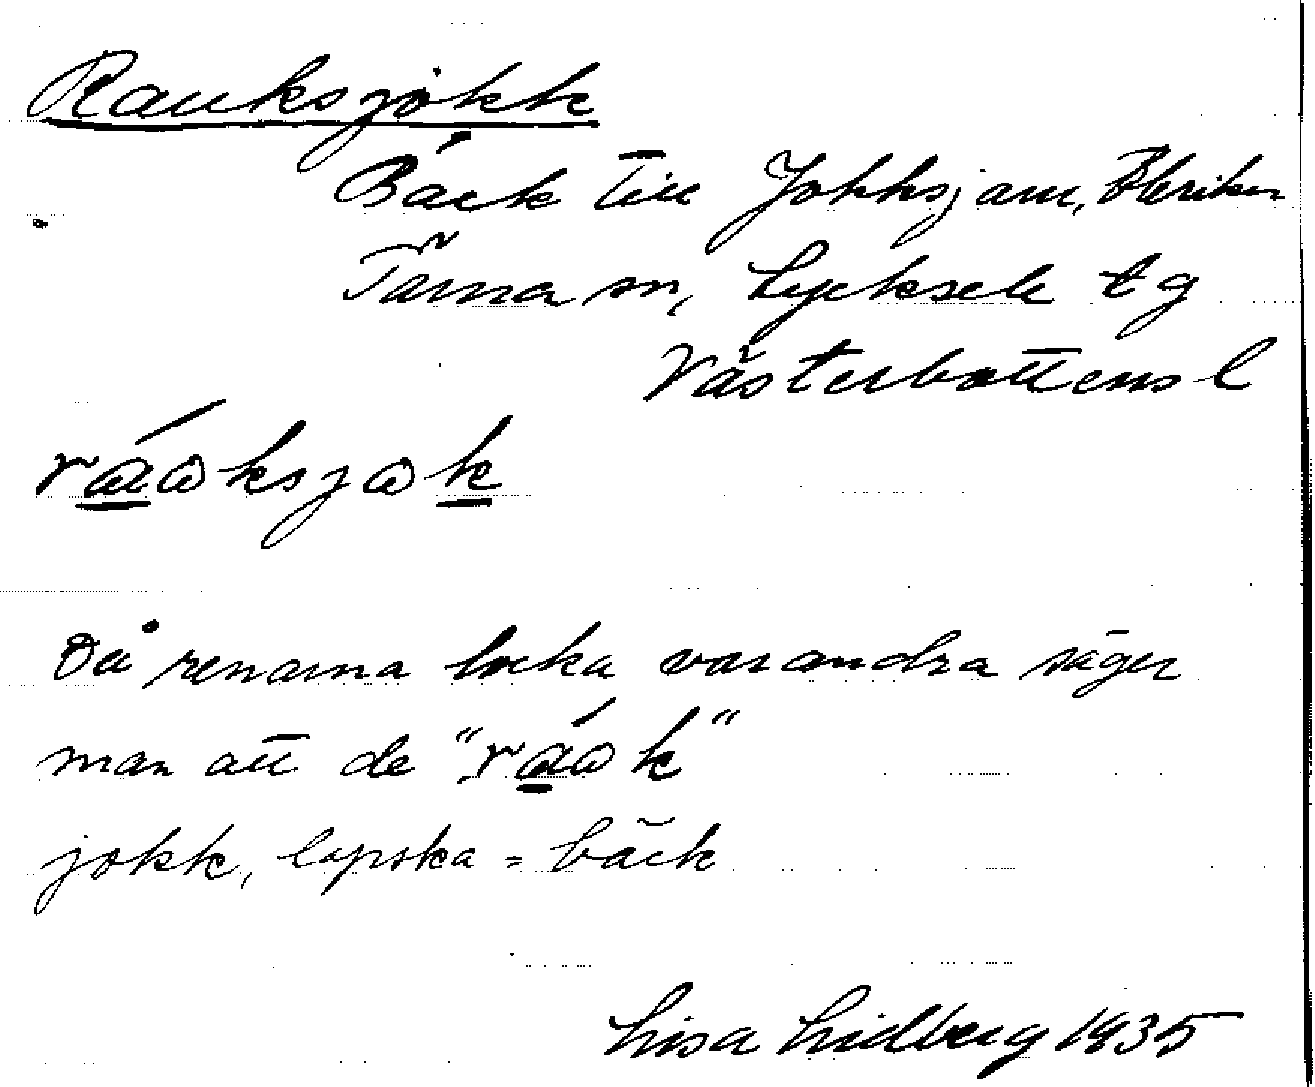 Rauksjokk
Bäck till Jokksjaur, Bleriken
Tärna sn, Lycksele tg
Västerbottens l
ráωksjωk
Då renarna locka varandra säger
man att de "ráωk"
jokk, lapska = bäck
Lisa Lidberg 1935